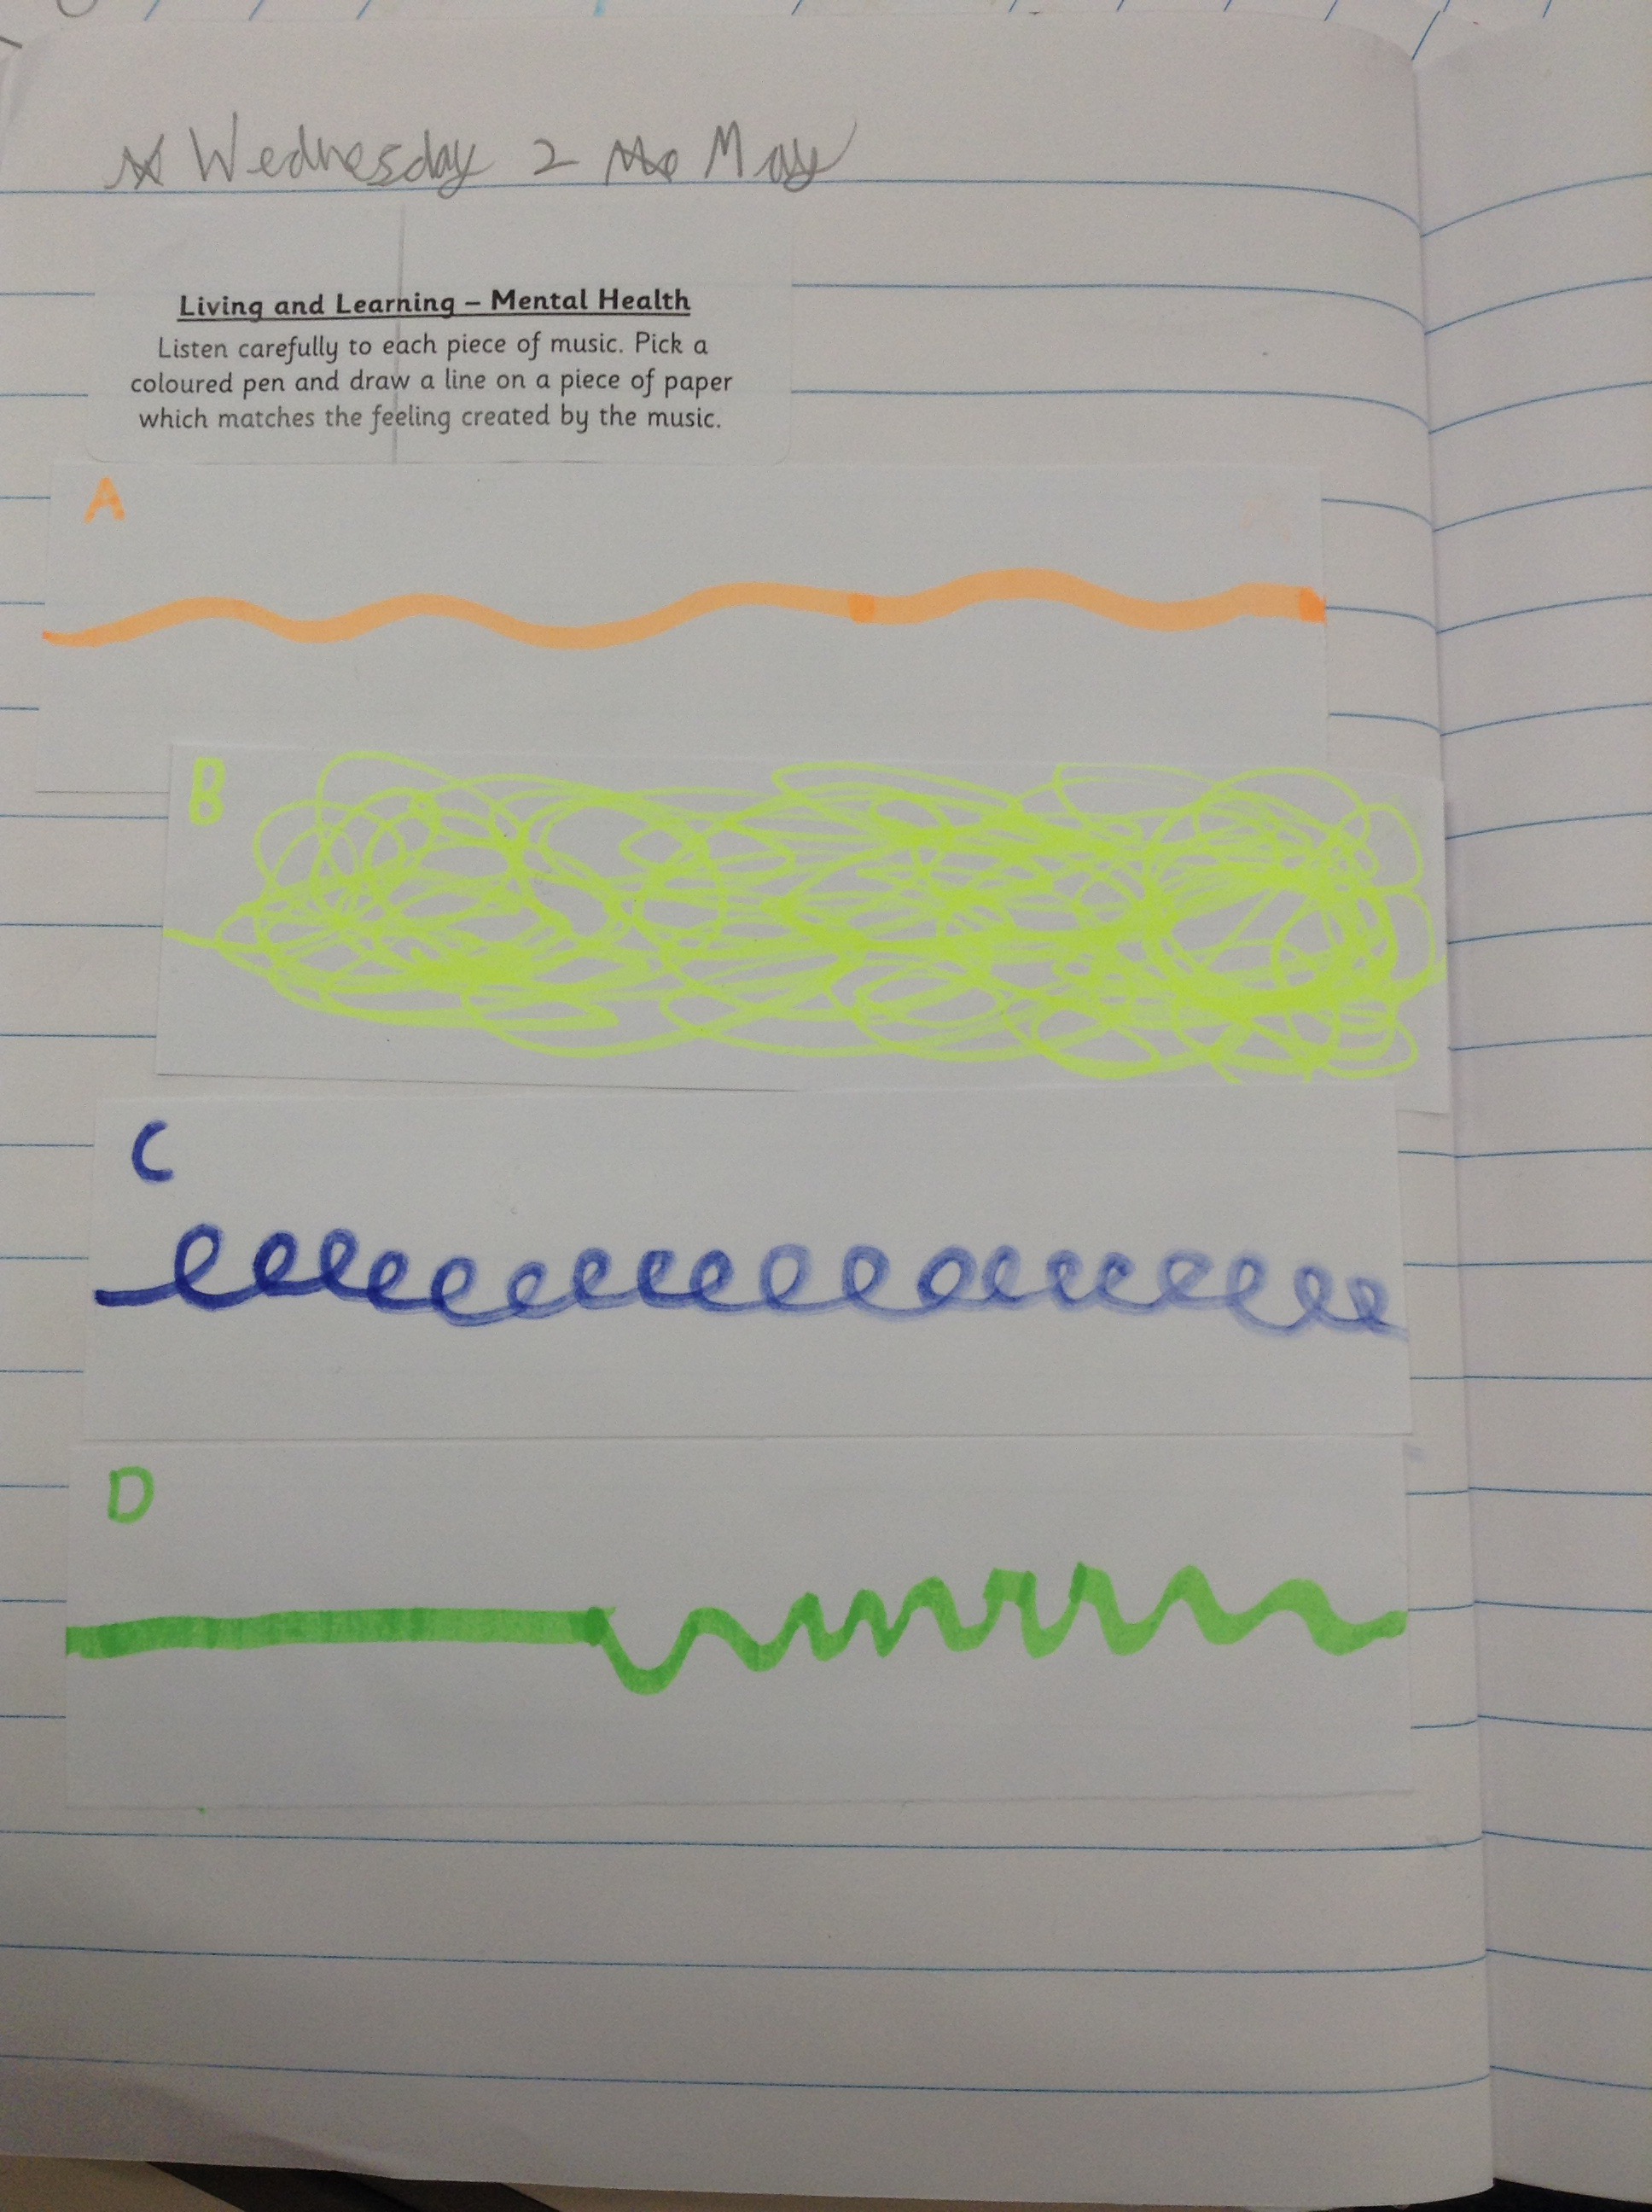 Wednesday 2 May
Living and Learning – Mental Health
Listen carefully to each piece of music. Pick a
coloured pen and draw a line on a piece of paper
which matches the feeling created by the music.
A
B
C
D